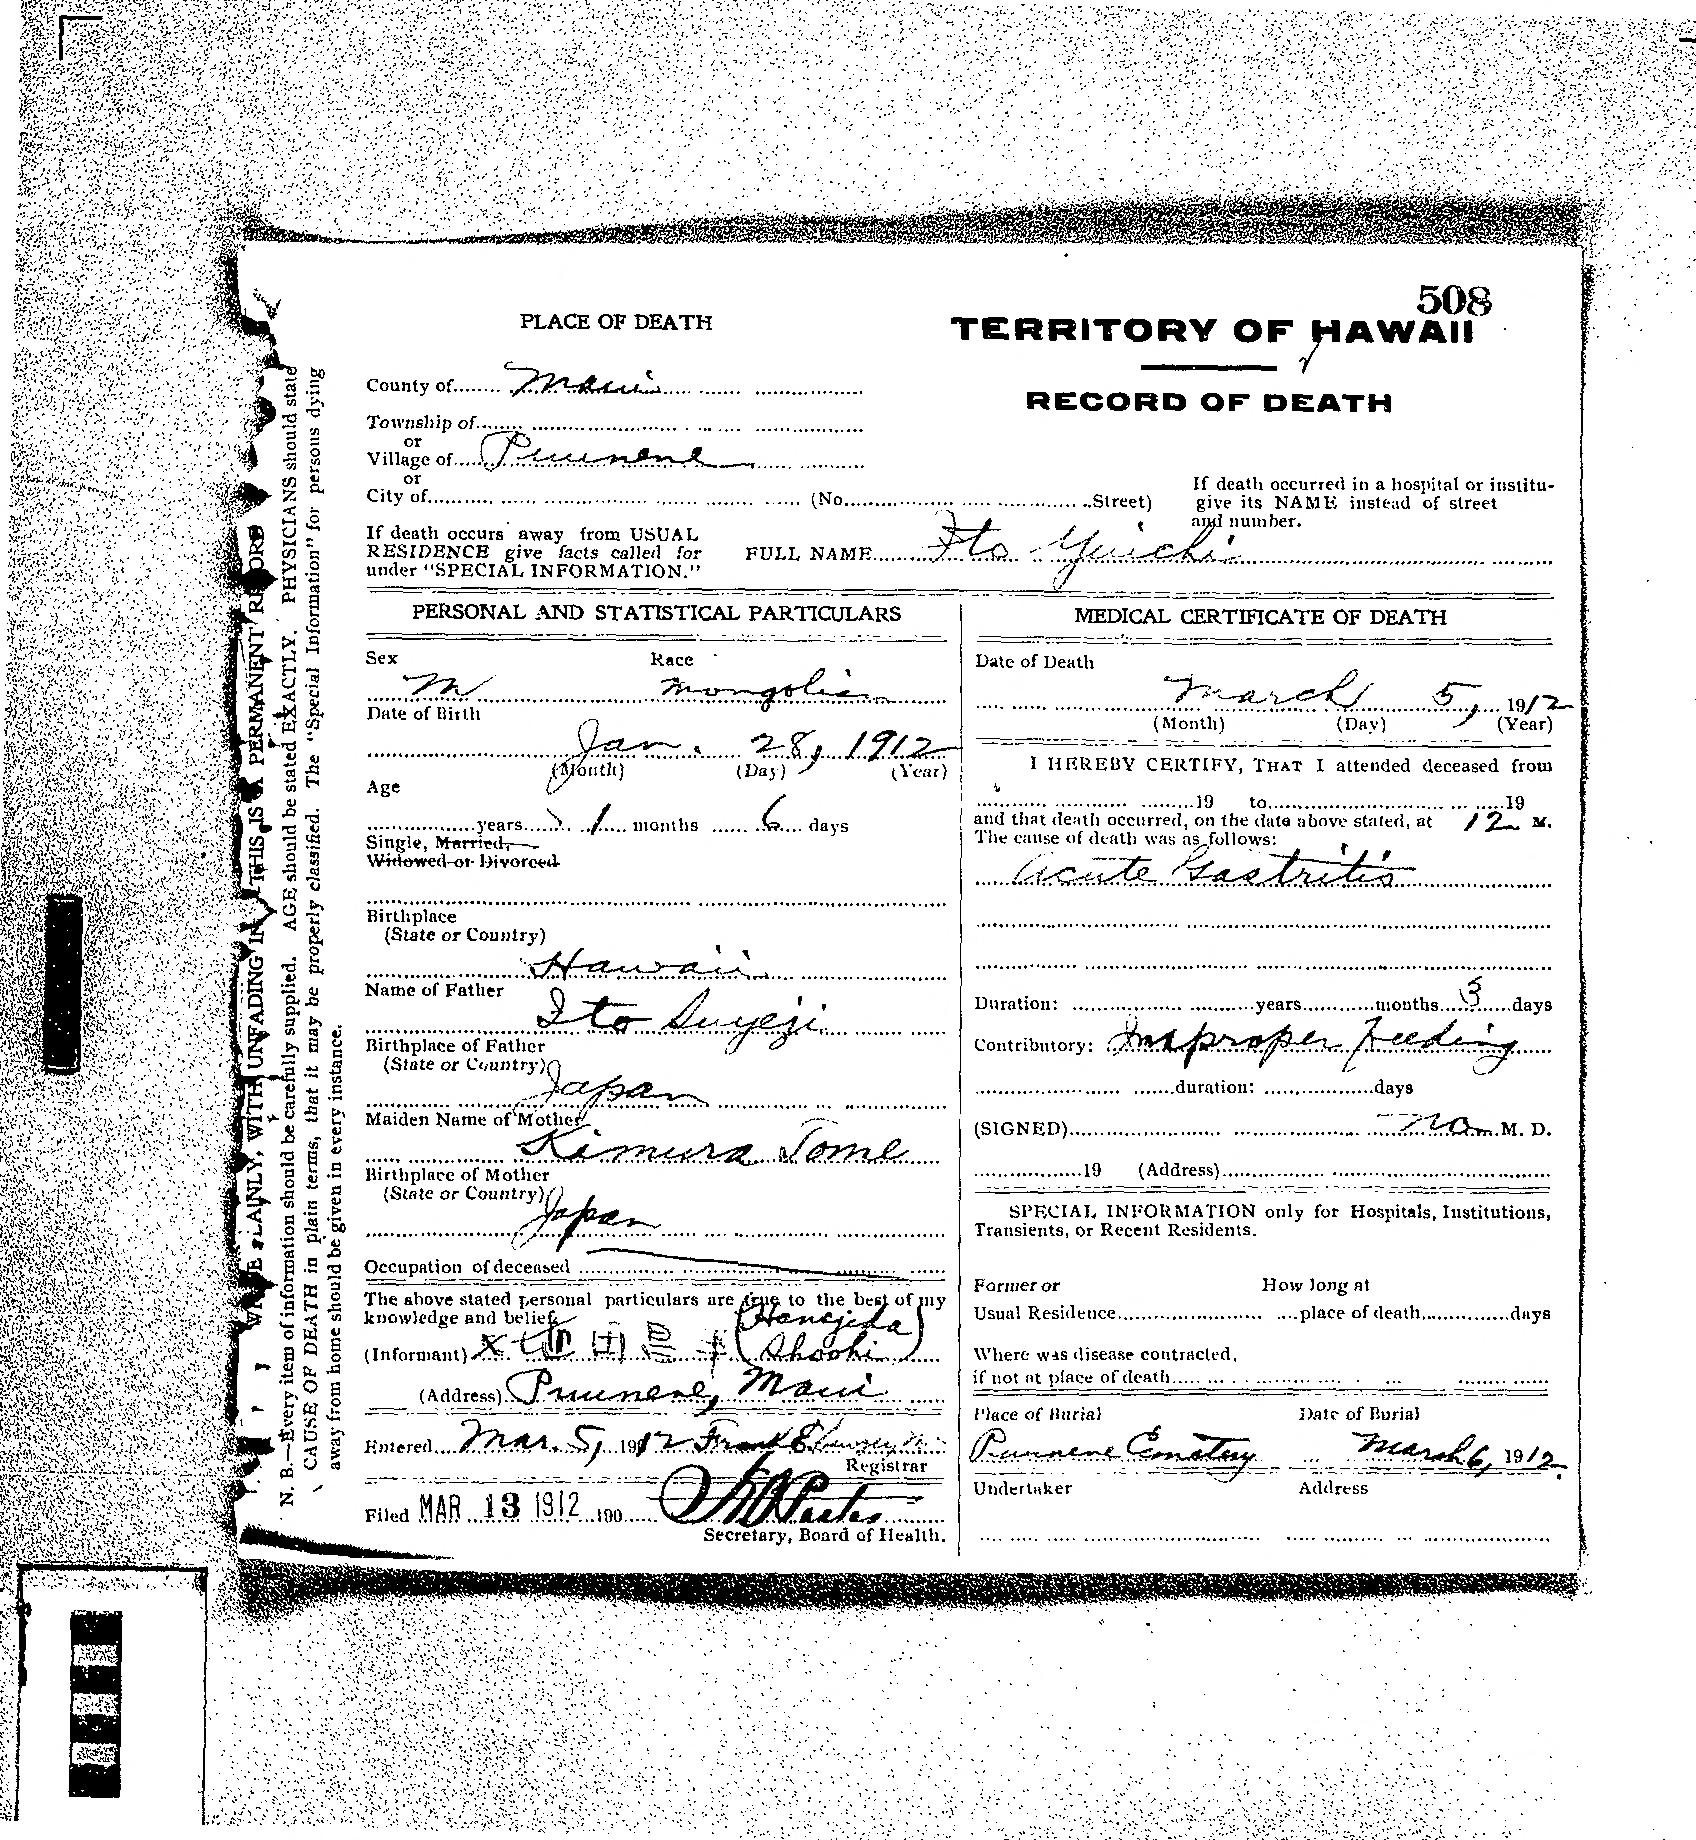 508
PLACE OF DEATH
TERRITORY OF HAWAII
RECORD OF DEATH
County of Maui
Township of
or
Village of Puunene
or
City of (No. Street)
If death occurred in a hospital or institu-
give its NAME instead of street
and number.
If death occurs away from USUAL
RESIDENCE give facts called for
under "SPECIAL INFORMATION."
FULL NAME Ito Yuichi
PERSONAL AND STATISTICAL PARTICULARS
Sex Race
M Mongolian
Date of Birth
Jan. 28, 1912
(Month) (Day) (Year)
Age
years 1 months 6 days
Single, Married,
Widowed or Divorced
Birthplace
(State or Country)
Hawaii
Name of Father
Ito Suyeji
Birthplace of Father
(State or Country)
Japan
Maiden Name of Mother
Kimura Tome
Birthplace of Mother
(State or Country)
Japan
Occupation of deceased
The above stated personal particulars are true to the best of my
knowledge and belief.
(Informant) X
(Address) Puunene, Maui
Entered Mar. 5, 1912 Frank E
Registrar
Filed MAR 13 1912 190
Secretary, Board of Health.
MEDICAL CERTIFICATE OF DEATH
Date of Death
March 5, 1912
(Month) (Day) (Year)
I HEREBY CERTIFY, THAT I attended deceased from
19 to 19
and that death occurred, on the date above stated, at 12 M.
The cause of death was as follows:
Acute Gastritis
Duration: years months 3 days
Contributory: Improper feeding
duration: days
(SIGNED) no M. D.
19 (Address)
SPECIAL INFORMATION only for Hospitals, Institutions,
Transients, or Recent Residents.
Former or How long at
Usual Residence place of death days
Where was disease contracted,
if not at place of death
Place of Burial Date of Burial
Puunene Cemetery March 6, 1912
Undertaker Address
WRITE PLAINLY, WITH UNFADING INK—THIS IS A PERMANENT RECORD
N. B.—Every item of information should be carefully supplied. AGE should be stated EXACTLY. PHYSICIANS should state
CAUSE OF DEATH in plain terms, that it may be properly classified. The "Special Information" for persons dying
away from home should be given in every instance.